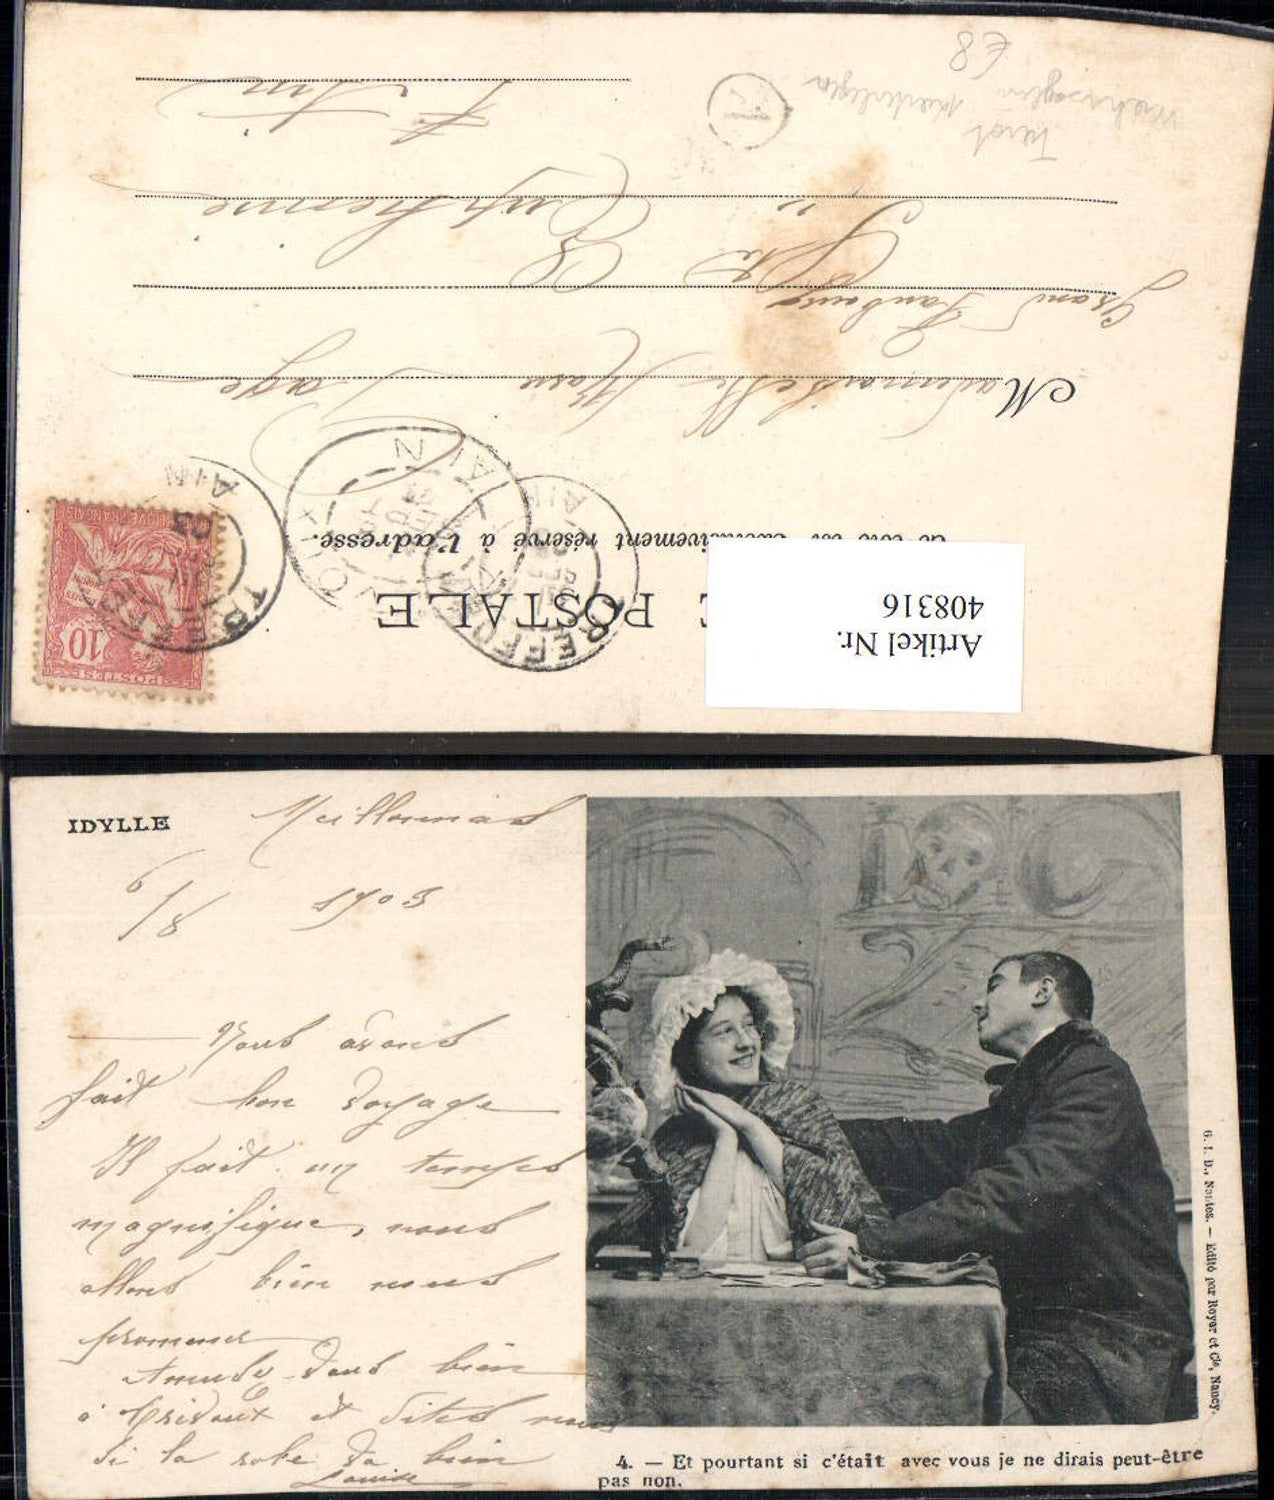 CARTE POSTALE
Ce côté est exclusivement réservé à l'adresse.
Mademoiselle Marie
Grand Faubourg
Ste Euphémie
Ain
AIN
TREFFORT
AIN
TREFFORT
AIN
POSTES
10
RÉPUBLIQUE FRANÇAISE
Artikel Nr.
408316
€8
IDYLLE
Meillonnas
6/8 1903
Nous avons
fait bon voyage
Il fait un temps
magnifique, nous
allons bien nous
promener
Amusez-vous bien
à Trévoux et dites nous
si la robe va bien
Louise
4. — Et pourtant si c'était avec vous je ne dirais peut-être
pas non.
G. I. D., Nantes. — Edité par Royer et Cie, Nancy.